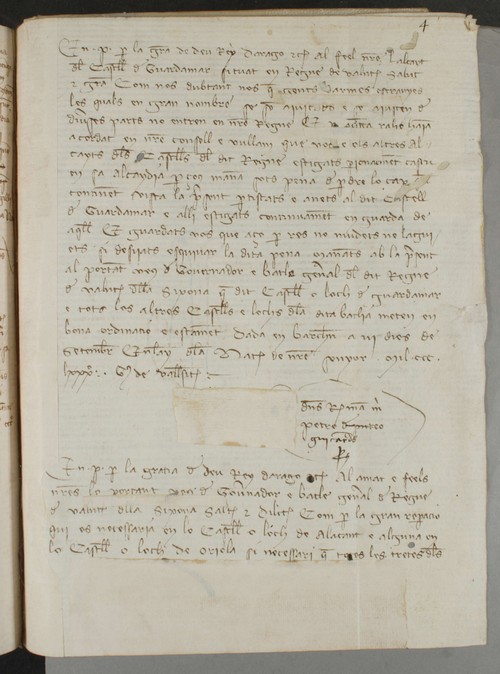 4
En .p. p la gra de deu Rey darago etc al feel nre, lalcait
dl Castell d Guardamar situat en Regne de valent Salut
e gra Com nos dubtant nos q gents darmes estranyes
les quals en gran nombre se son ajustats e se ajusten d
diuses parts no entren en nre Regne E p aquesta raho haja
acordat en nre consell e vullam que vos e els altres al
cayts dls Castells dl dit Regne estigats psonalment casu
en sa alcaydia p ço us mana sots pena d pdre lo cap
continent vista la pnt ptiscats e anets al dit Castell
d Guardamar e alli estigats continuament en guarda de
aqll E guardats vos que aço p res no mudets ne lagui
ets si desijats esquivar la dita pena manats ab la pnt
al portant veus d Gouernador e batle genal dl dit Regne
d valent dlla Sixona q dit Castell o loch d guardamar
e tots los altres Castells e lochs dla dita batlia meten en
bona ordinatio e estament Dada en barchna a vi dies de
Setembr En lay dla Nat de nre senyor Mil ccc
lxxx
dns Rex ma m
petro
En .p. p la gratia d deu Rey darago etc Al amat e feels
nres lo portant veus d Gouernador e batle genal d Regne
d valent dlla Sixona Salut e dilect Com p la gran reparatio
qui es necessaria en lo Castell o loch de Alacant e alguna en
lo Castell o loch de Oriola si necessari q totes les rendes dls